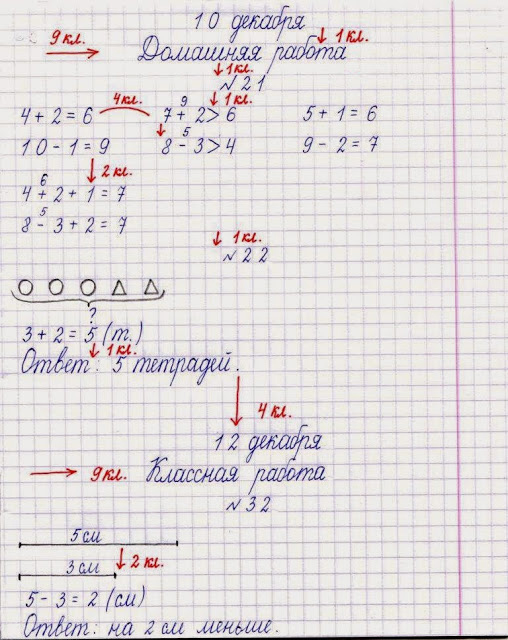 10 декабря
9 кл. 1 кл.
Домашняя работа
1 кл.
№ 21
4 кл. 9 1 кл.
4 + 2 = 6 7 + 2 > 6 5 + 1 = 6
5
10 - 1 = 9 8 - 3 > 4 9 - 2 = 7
2 кл.
6
4 + 2 + 1 = 7
5
8 - 3 + 2 = 7
1 кл.
№ 22
?
3 + 2 = 5 (т.)
1 кл.
Ответ: 5 тетрадей.
4 кл.
12 декабря
9 кл. Классная работа
№ 32
5 см
3 см 2 кл.
5 - 3 = 2 (см)
Ответ: на 2 см меньше.